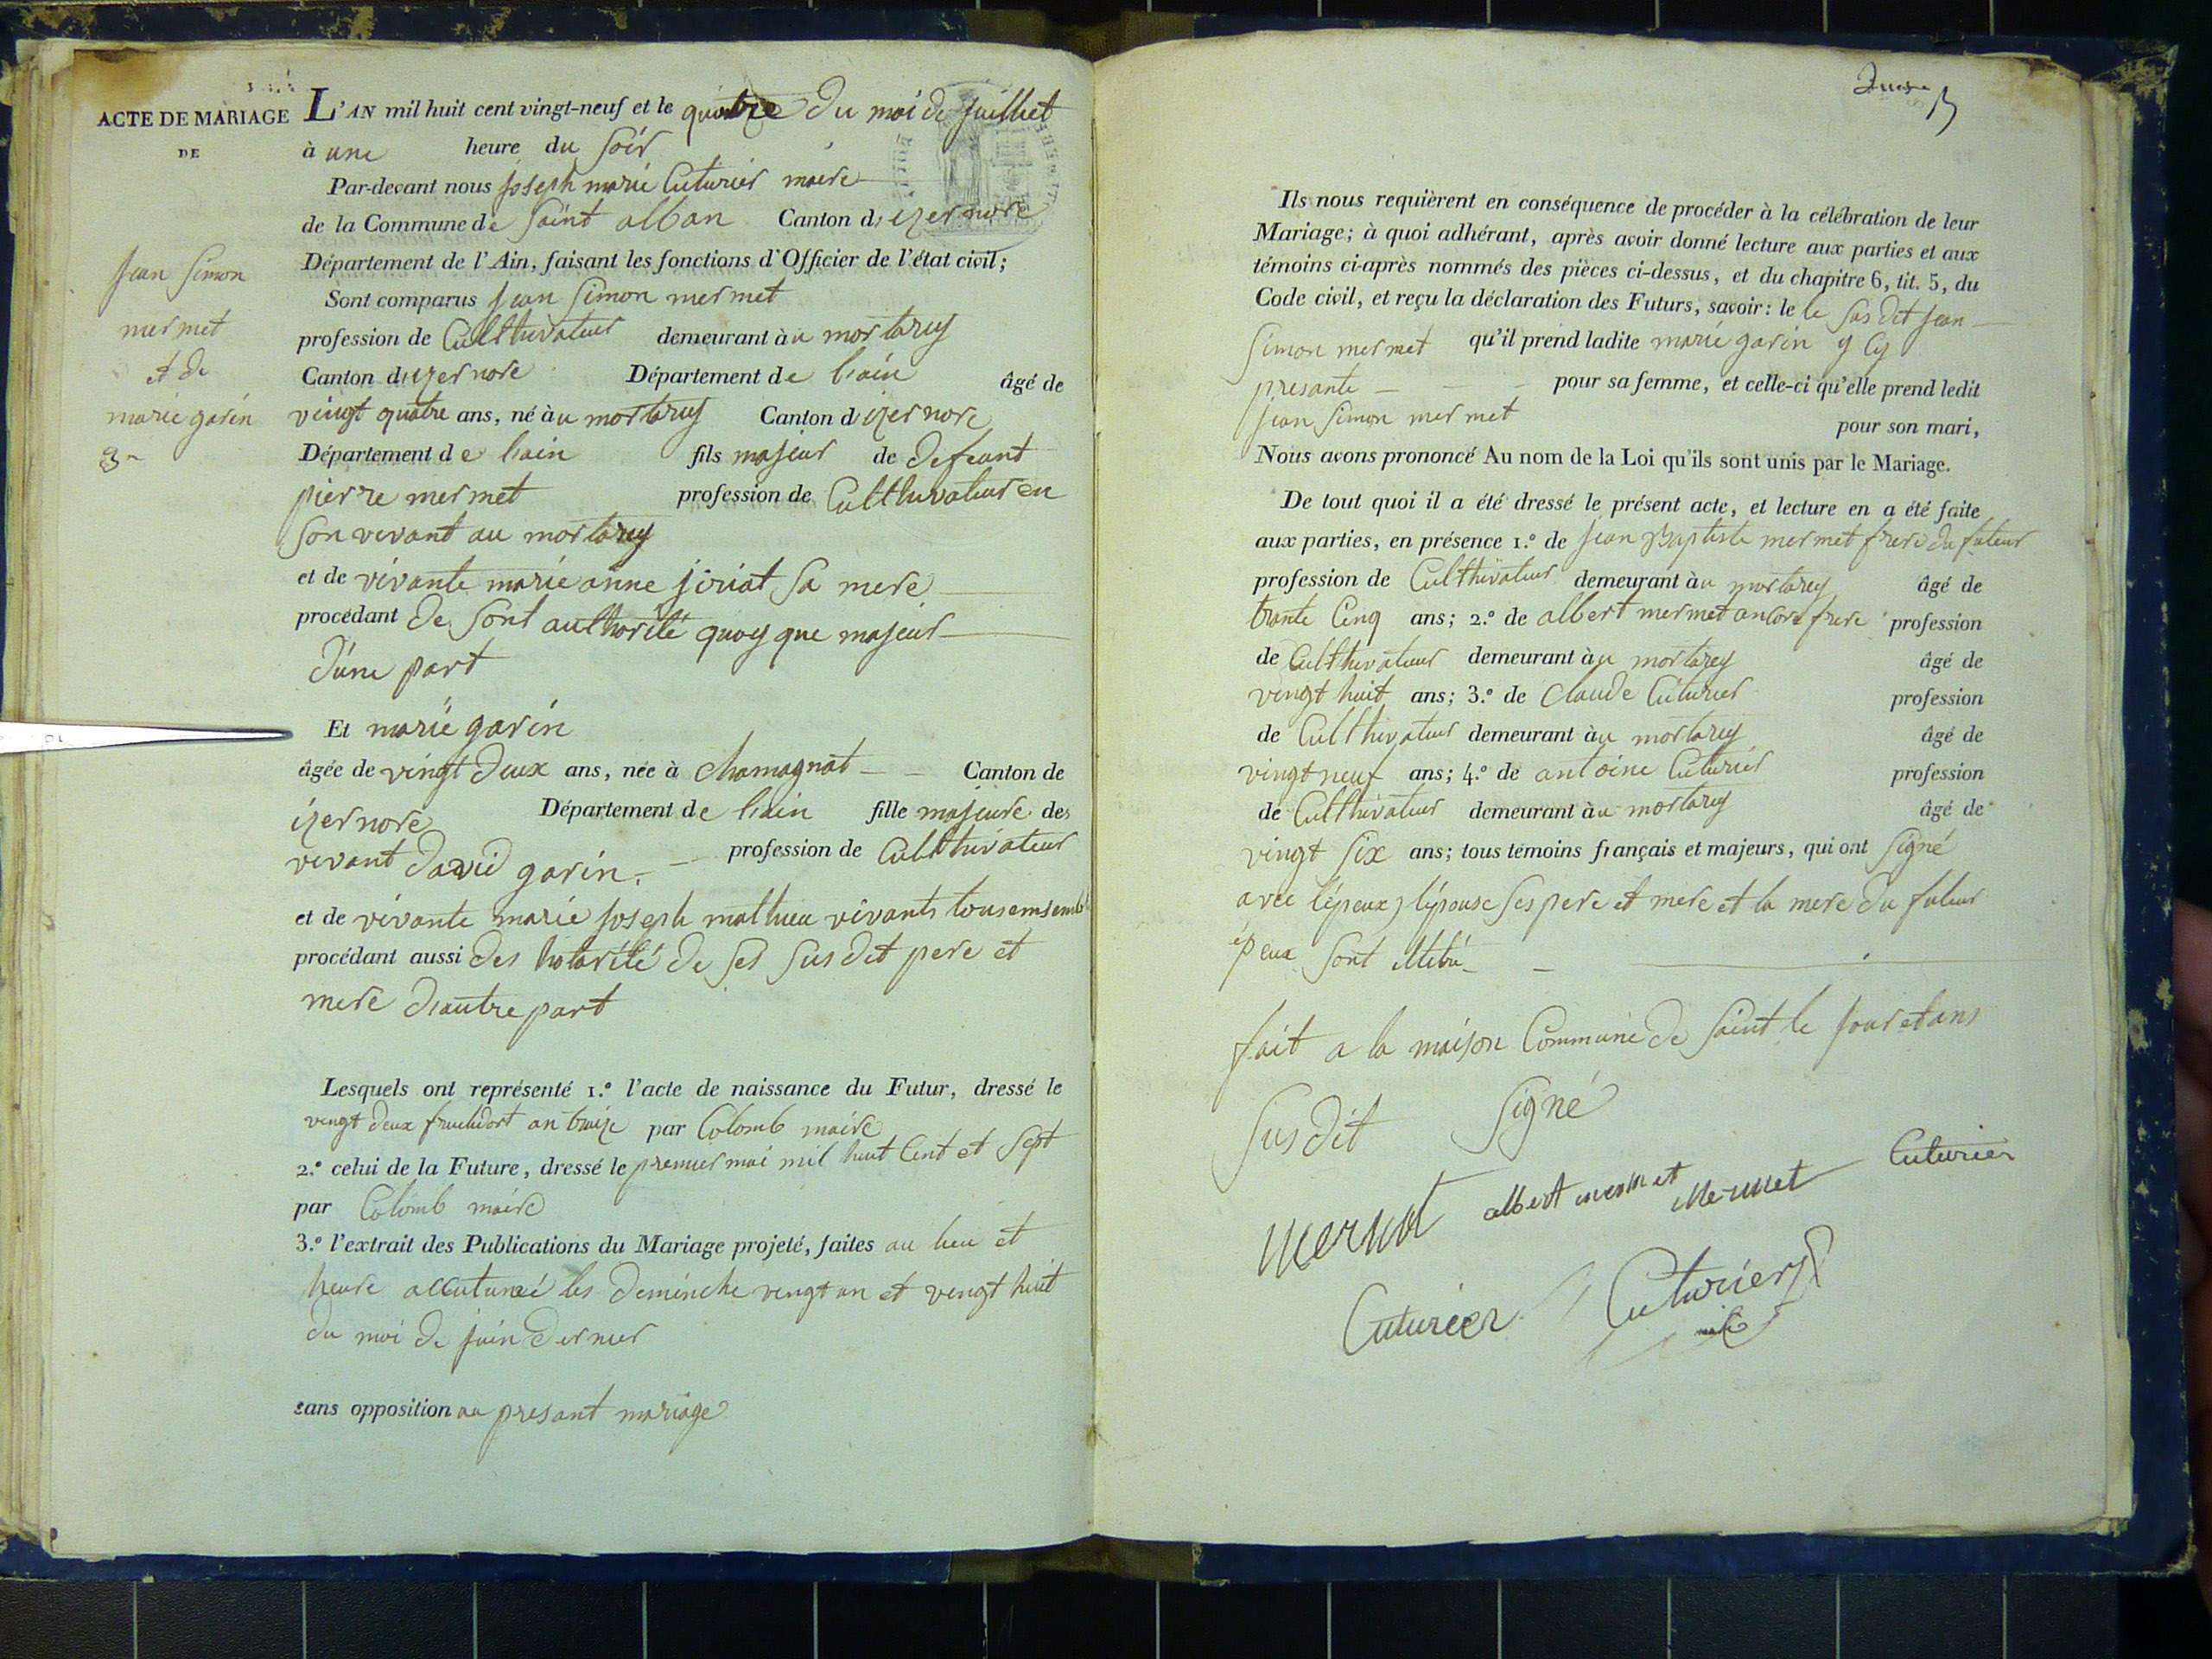 ACTE DE MARIAGE
DE
Jean Simon
mermet
et de
marie garin
3
L'AN mil huit cent vingt-neuf et le du moi de juilliet
à une heure du soir
Par-devant nous joseph marie Cuturier maire
de la Commune de saint alban Canton d'izernore
Département de l'Ain, faisant les fonctions d'Officier de l'état civil;
Sont comparus jean simon mermet
profession de Cultthivateur demeurant àu mortarey
Canton d'izernore Département de l'ain âgé de
vingt quatre ans, né àu mortarey Canton d'izernore
Département de l'ain fils majeur de defeunt
pierre mermet profession de Cultthivateur en
son vivant au mortarey
et de vivante marie anne joriat sa mere
procédant de sont authorité quoy que majeur
d'une part
Et marie garin
âgée de vingt deux ans, née à chamagnat Canton de
izernore Département de l'ain fille majeure de
vivant david garin profession de Cultthivateur
et de vivante marie joseph mathieu vivants tous emsembl
procédant aussi des hotorité de ses sus dit pere et
mere d'autre part
Lesquels ont représenté 1.º l'acte de naissance du Futur, dressé le
vingt deux fruchidort an traize par Colomb maire
2.º celui de la Future, dressé le premier mai mil huit Cent et sept
par Colomb maire
3.º l'extrait des Publications du Mariage projeté, faites au lieu et
heure les deminche vingt un et vingt huit
du moi de juin dernier
sans opposition au presant mariage
Ils nous requièrent en conséquence de procéder à la célébration de leur
Mariage; à quoi adhérant, après avoir donné lecture aux parties et aux
témoins ci-après nommés des pièces ci-dessus, et du chapitre 6, tit. 5, du
Code civil, et reçu la déclaration des Futurs, savoir: le le sus dit jean
simon mermet qu'il prend ladite marie garin y Cy
presante pour sa femme, et celle-ci qu'elle prend ledit
jean simon mermet pour son mari,
Nous avons prononcé Au nom de la Loi qu'ils sont unis par le Mariage.
De tout quoi il a été dressé le présent acte, et lecture en a été faite
aux parties, en présence 1.º de jean Baptiste mermet frere du futeur
profession de Cultthivateur demeurant àu mortarey âgé de
trante Cinq ans; 2.º de albert mermet ancore frere profession
de Cultthivateur demeurant àu mortarey âgé de
vingt huit ans; 3.º de Claude Cuturier profession
de Cultthivateur demeurant àu mortarey âgé de
vingt neuf ans; 4.º de antoine Cuturier profession
de Cultthivateur demeurant àu mortarey âgé de
vingt six ans; tous témoins français et majeurs, qui ont signé
avec l'épeux, l'épouse ses pere et mere et la mere du futeur
épeux sont
fait a la maison Commune de saint le jour et ans
sus dit signé
Mermet albert mermet Mermet Cuturier
Cuturier Cuturier